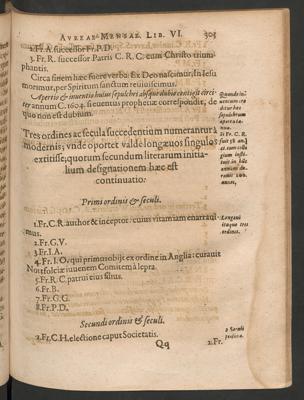 AVREAE MENSAE LIB. VI. 303
2. Fr. A. successor Fr. P. D.
3. Fr. R. successor Patris C. R. C. cum Christo triumphantis.
Circa finem hæc fuere verba: Ex Deo nascimur, in Iesu
morimur, per Spiritum sanctum reuiuiscimus.
Apertio & inuentio huius sepulchri absque dubio contigit circiter
annum C. 1604. si euentus prophetiæ correspondit, de
quo non est dubium.
Tres ordines ac secula succedentium numerantur à
modernis; vnde oportet valde longæuos singulos
extitisse; quorum secundum literarum initialium
designationem hæc est
continuatio:
Primi ordinis & seculi.
1. Fr. C. R. author & inceptor: cuius vitam iam enarrauimus.
2. Fr. G. V.
3. Fr. I. A.
4. Fr. I. O. qui primus obijt ex ordine in Anglia: curauit
Nortfolciæ iuuenem Comitem à lepra.
5. Fr. R. C. patrui eius filius.
6. Fr. B.
7. Fr. G. G.
8. Fr. P. D.
Longæui
itaque tres
ordines.
Secundi ordinis & seculi.
1. Fr. C. H. electione caput Societatis.
Qq
2. Fr.